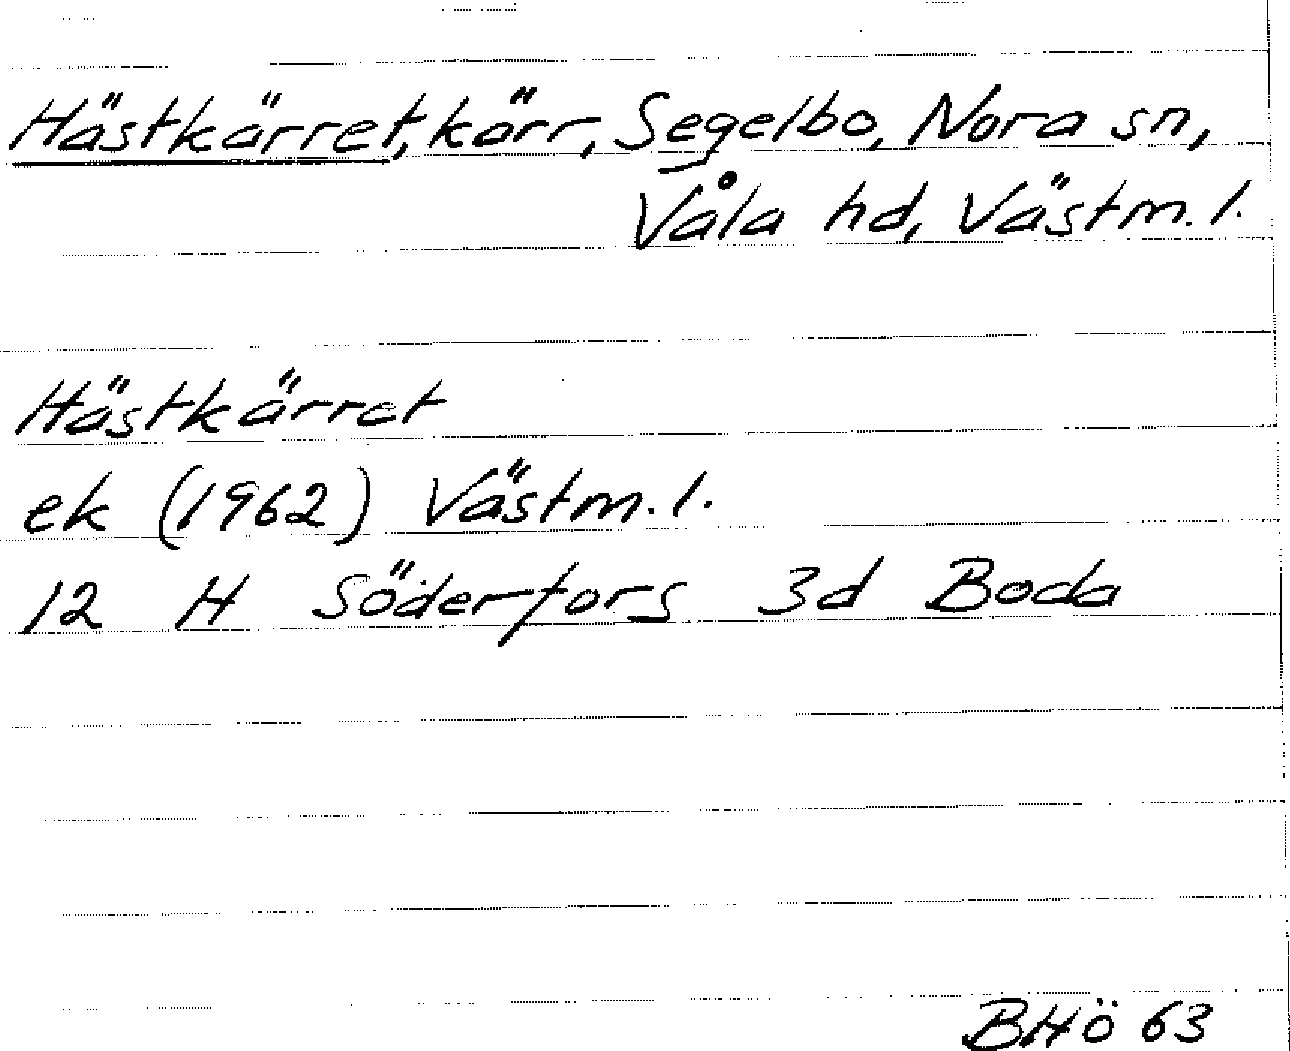 Hästkärret, kärr, Segelbo, Nora sn,
Våla hd, Västm. l.
Hästkärret
ek (1962) Västm. l.
12 H Söderfors 3d Boda
BHö 63